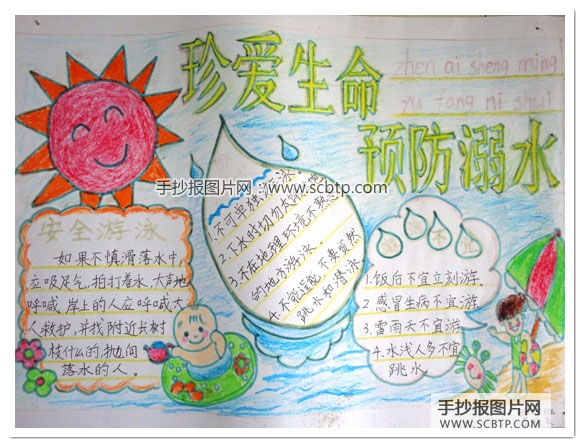 珍爱生命
zhen ai sheng ming
yu fang ni shui
预防溺水
手抄报图片网：www.scbtp.com
安全游泳
如果不慎滑落水中，
应吸足气，拍打着水，大声地
呼喊，岸上的人应呼喊大
人救护，并找附近长树
枝什么的，抛向
落水的人。
1.不可单独游泳。
2.下水时切勿太饿
3.不在地理环境不熟悉
的地方游泳
4.不能逞能不要贸然
跳水和潜泳
1.饭后不宜立刻游。
2.感冒生病不宜游。
3.雷雨天不宜游
4.水浅人多不宜
跳水。
手抄报图片网
SCBTP.COM